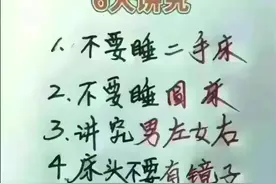 6大讲究
1.不要睡二手床
2.不要睡圆床
3.讲究男左女右
4.床头不要有镜子